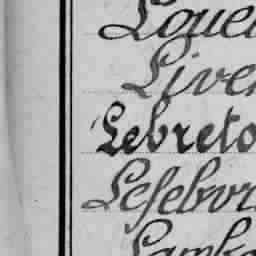 Louel
Liver
Lebreto
Lefebvr
Lamba